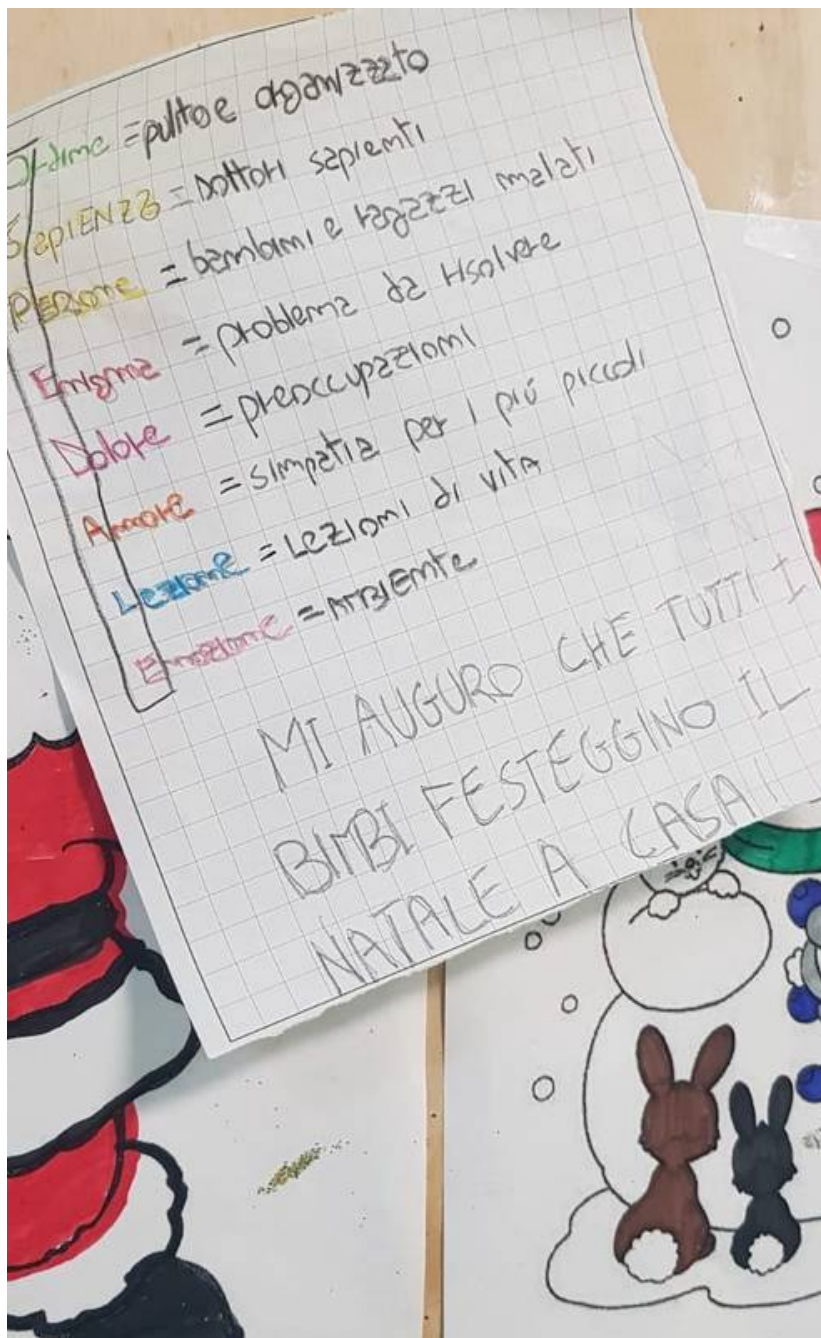 Ordine = pulito e organizzato
SapIENZa = Dottori sapienti
PERSone = bambini e ragazzi malati
Enigma = problema da risolvere
Dolore = preoccupazioni
Amore = simpatia per i più piccoli
Lezione = LEZIONI di vita
Emozione = AMBIEnte
MI AUGURO CHE TUTTI I
BIMBI FESTEGGINO IL
NATALE A CASA!